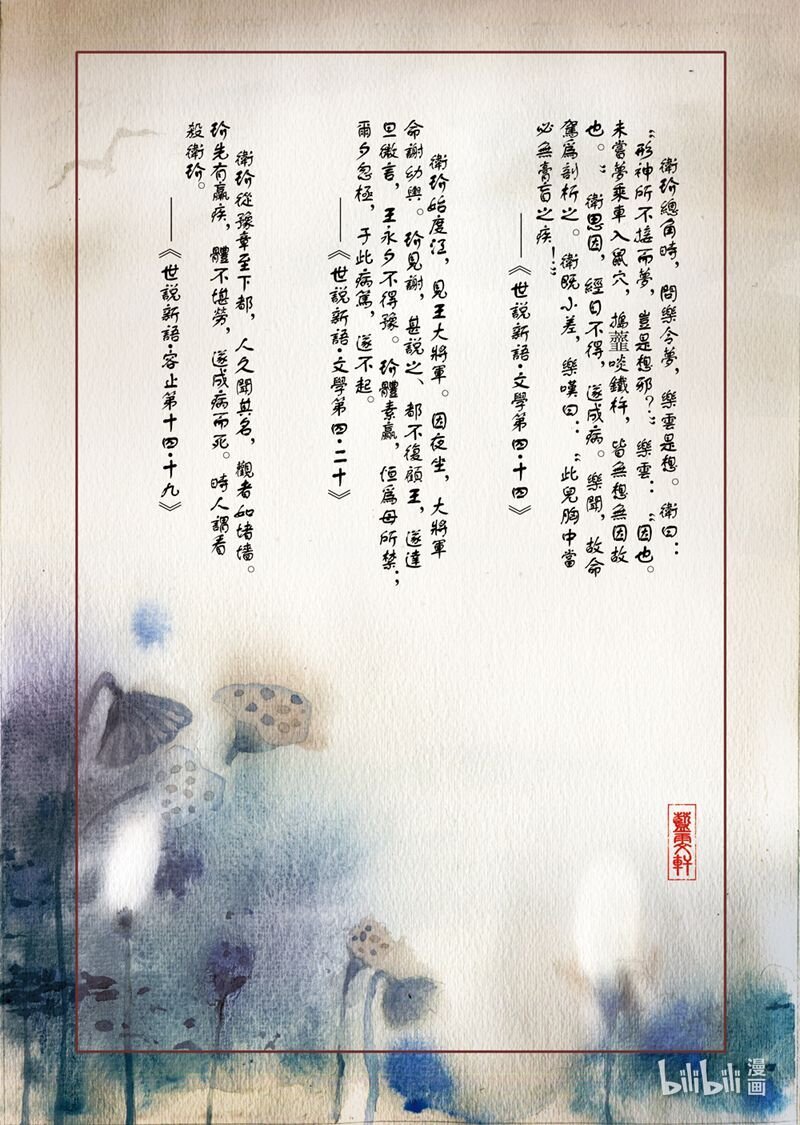 衛玠總角時，問樂令夢，樂雲是想。衛曰：
“形神所不接而夢，豈是想邪？”樂雲：“因也。
未嘗夢乘車入鼠穴，搗齏啖鐵杵，皆無想無因故
也。”衛思因，經日不得，遂成病。樂聞，故命
駕為剖析之。衛既小差，樂嘆曰：“此兒胸中當
必無膏肓之疾！”
——《世說新語·文學第四·十四》
衛玠始度江，見王大將軍。因夜坐，大將軍
命謝幼輿。玠見謝，甚說之、都不復顧王，遂達
旦微言，王永夕不得豫。玠體素羸，恆為母所禁；
爾夕忽極，于此病篤，遂不起。
——《世說新語·文學第四·二十》
衛玠從豫章至下都，人久聞其名，觀者如堵墻。
玠先有羸疾，體不堪勞，遂成病而死。時人謂看
殺衛玠。
——《世說新語·容止第十四·十九》
bilibili 漫画